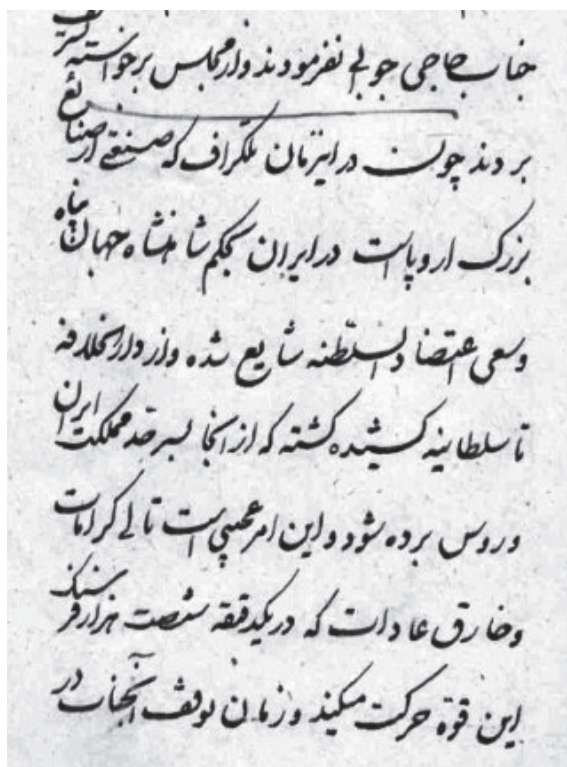 جناب حاجی جوابی نفرمودند و از مجلس برخواسته تشریف
بردند چون در این زمان تلگراف که صنعتی از صنایع
بزرگ اروپاست در ایران بحکم شاهنشاه جهان پناه
وسعی اعتضادالسلطنه شایع شده و از دارالخلافه
تا سلطانیه کشیده گشته که از آنجا بسرحد مملکت ایران
و روس برده شود و این امر عجیبی است تالی کرامات
و خارق عادات که در یکدقیقه شصت هزار فرسنگ
این قوه حرکت میکند و زمان توقف آنجناب در